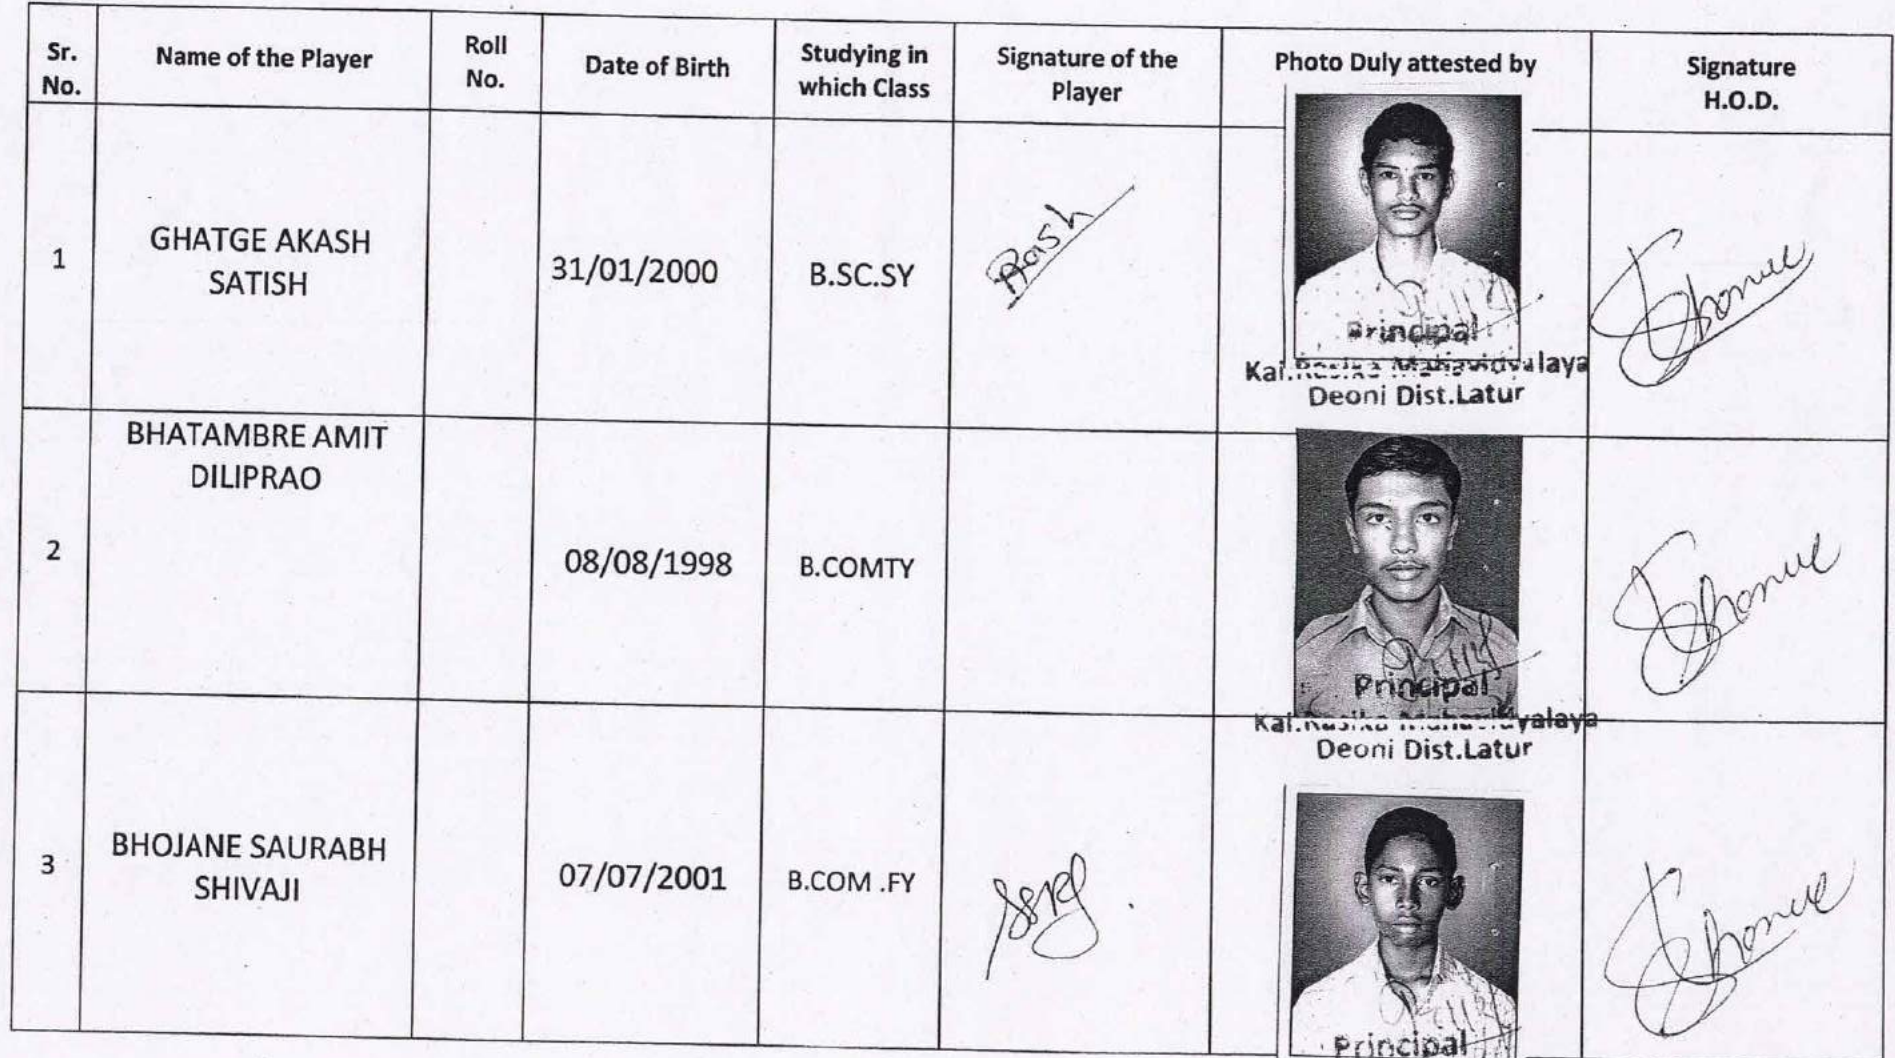 Sr. No.
Name of the Player
Roll No.
Date of Birth
Studying in which Class
Signature of the Player
Photo Duly attested by
Signature H.O.D.
1
GHATGE AKASH
SATISH
31/01/2000
B.SC.SY
Principal
Kal.Rasika Mahavidyalaya
Deoni Dist.Latur
2
BHATAMBRE AMIT
DILIPRAO
08/08/1998
B.COMTY
Principal
Kal.Rasika Mahavidyalaya
Deoni Dist.Latur
3
BHOJANE SAURABH
SHIVAJI
07/07/2001
B.COM .FY
Principal